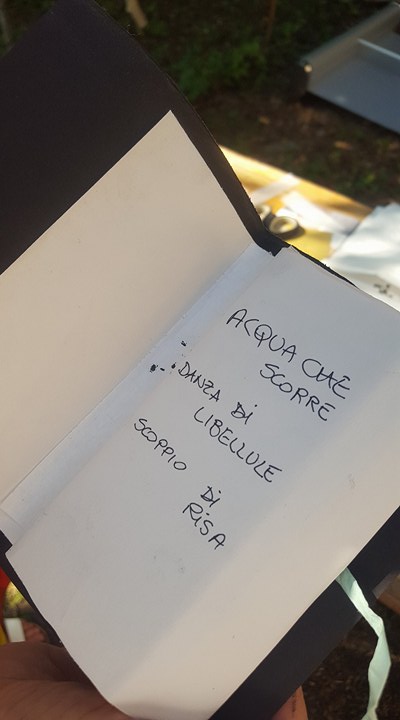 ACQUA CHE
SCORRE
DANZA Di
LIBELLULE
SCOPPIO
Di
RiSA